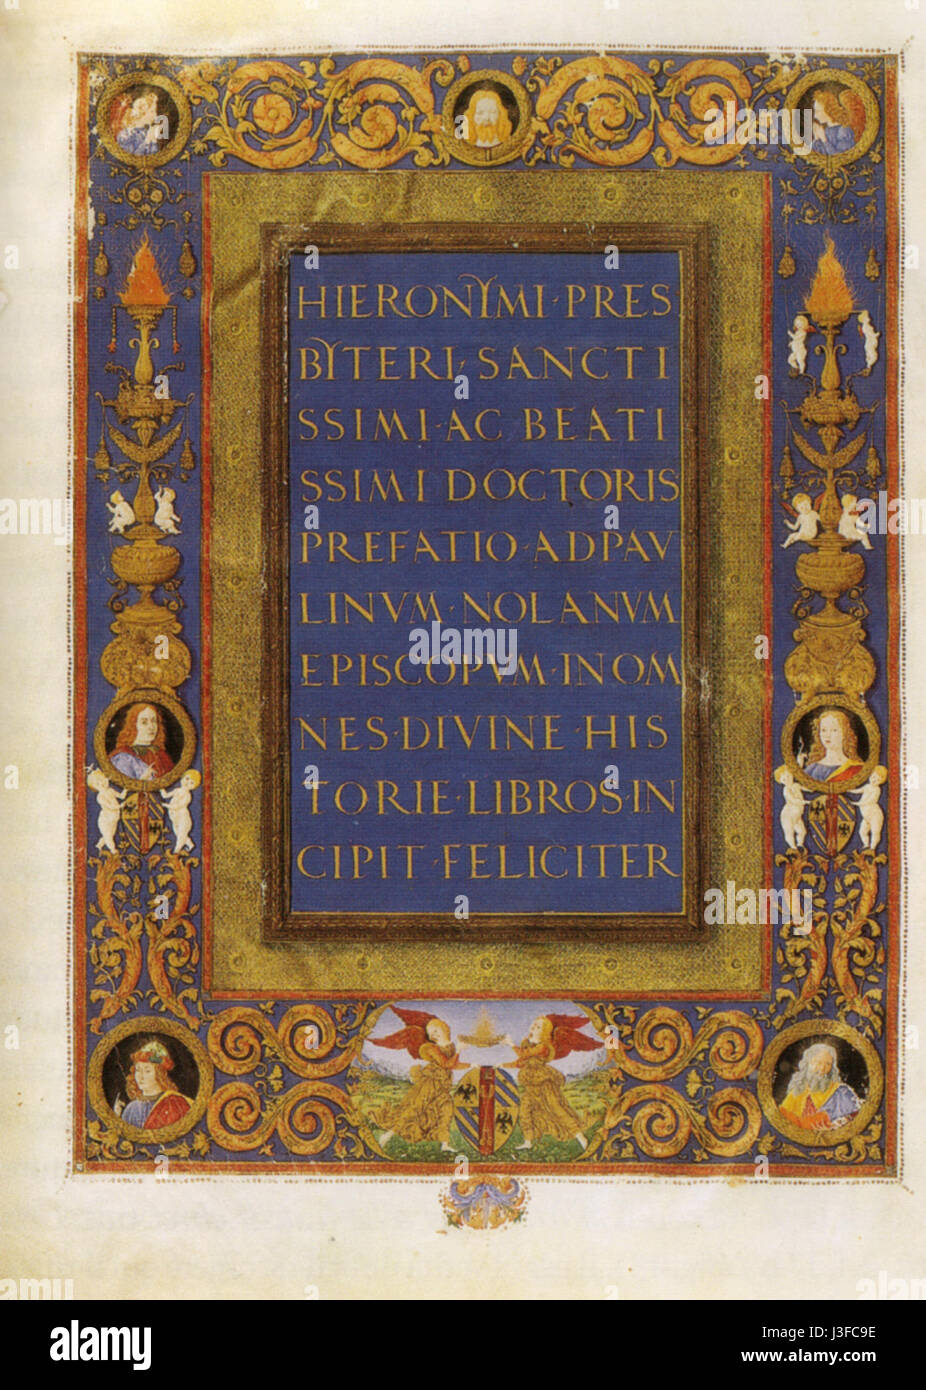 HIERONYMI·PRES
BYTERI·SANCTI
SSIMI·AC BEATI
SSIMI DOCTORIS
PREFATIO·AD PAV
LINVM·NOLANVM
EPISCOPVM·IN OM
NES·DIVINE·HIS
TORIE·LIBROS·IN
CIPIT·FELICITER
alamy stock photo
alamy
J3FC9E
www.alamy.com